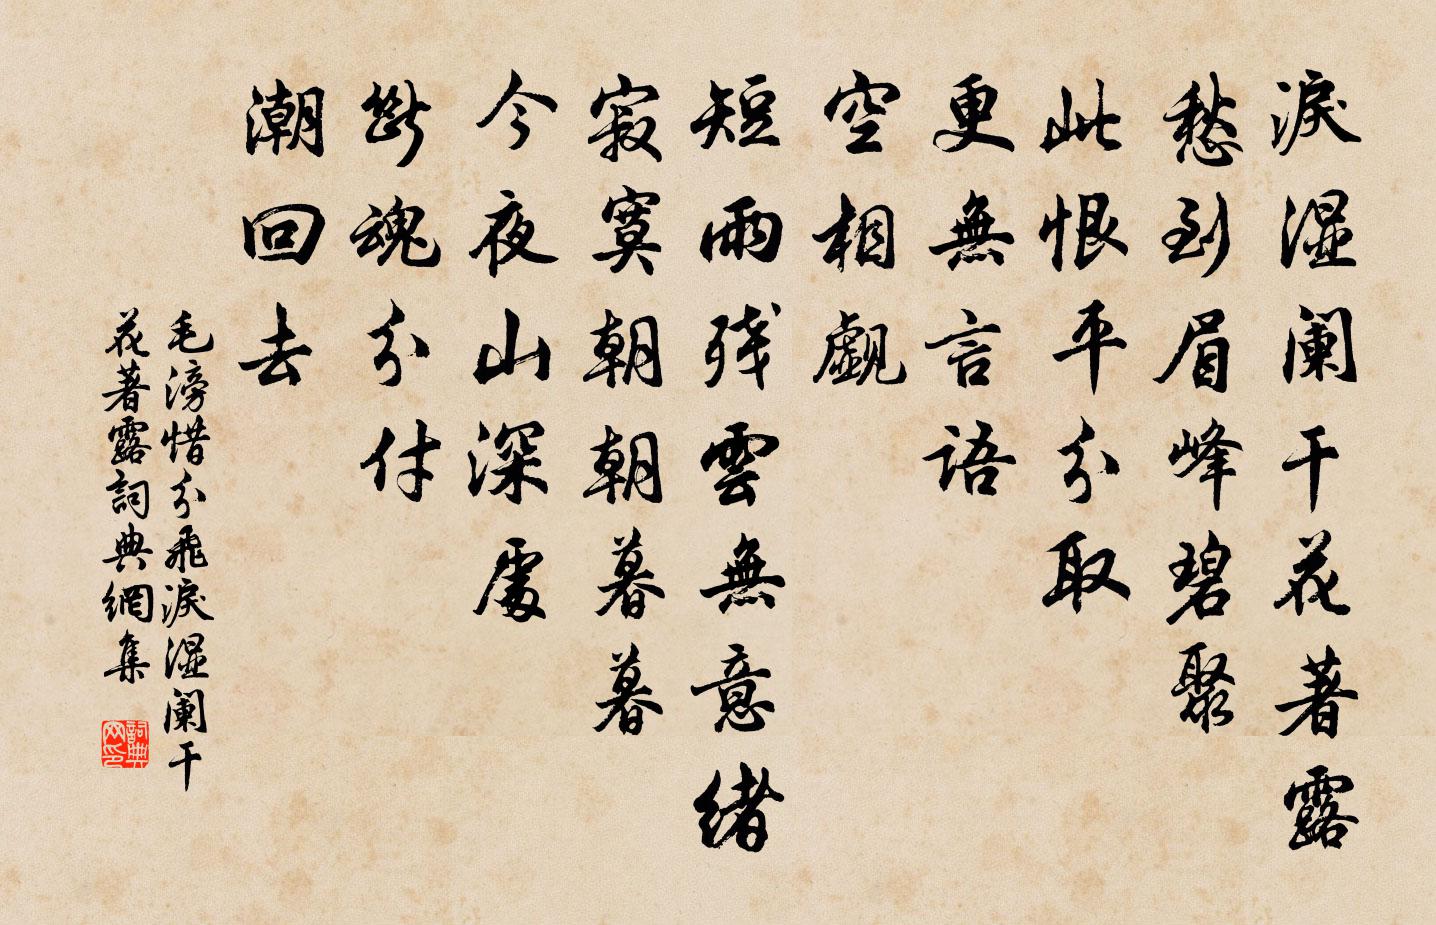 淚濕闌干花著露
愁到眉峰碧聚
此恨平分取
更無言語
空相覷
短雨殘雲無意緒
寂寞朝朝暮暮
今夜山深處
斷魂分付
潮回去
毛滂惜分飛淚濕闌干
花著露詞典網集
詞典
网印